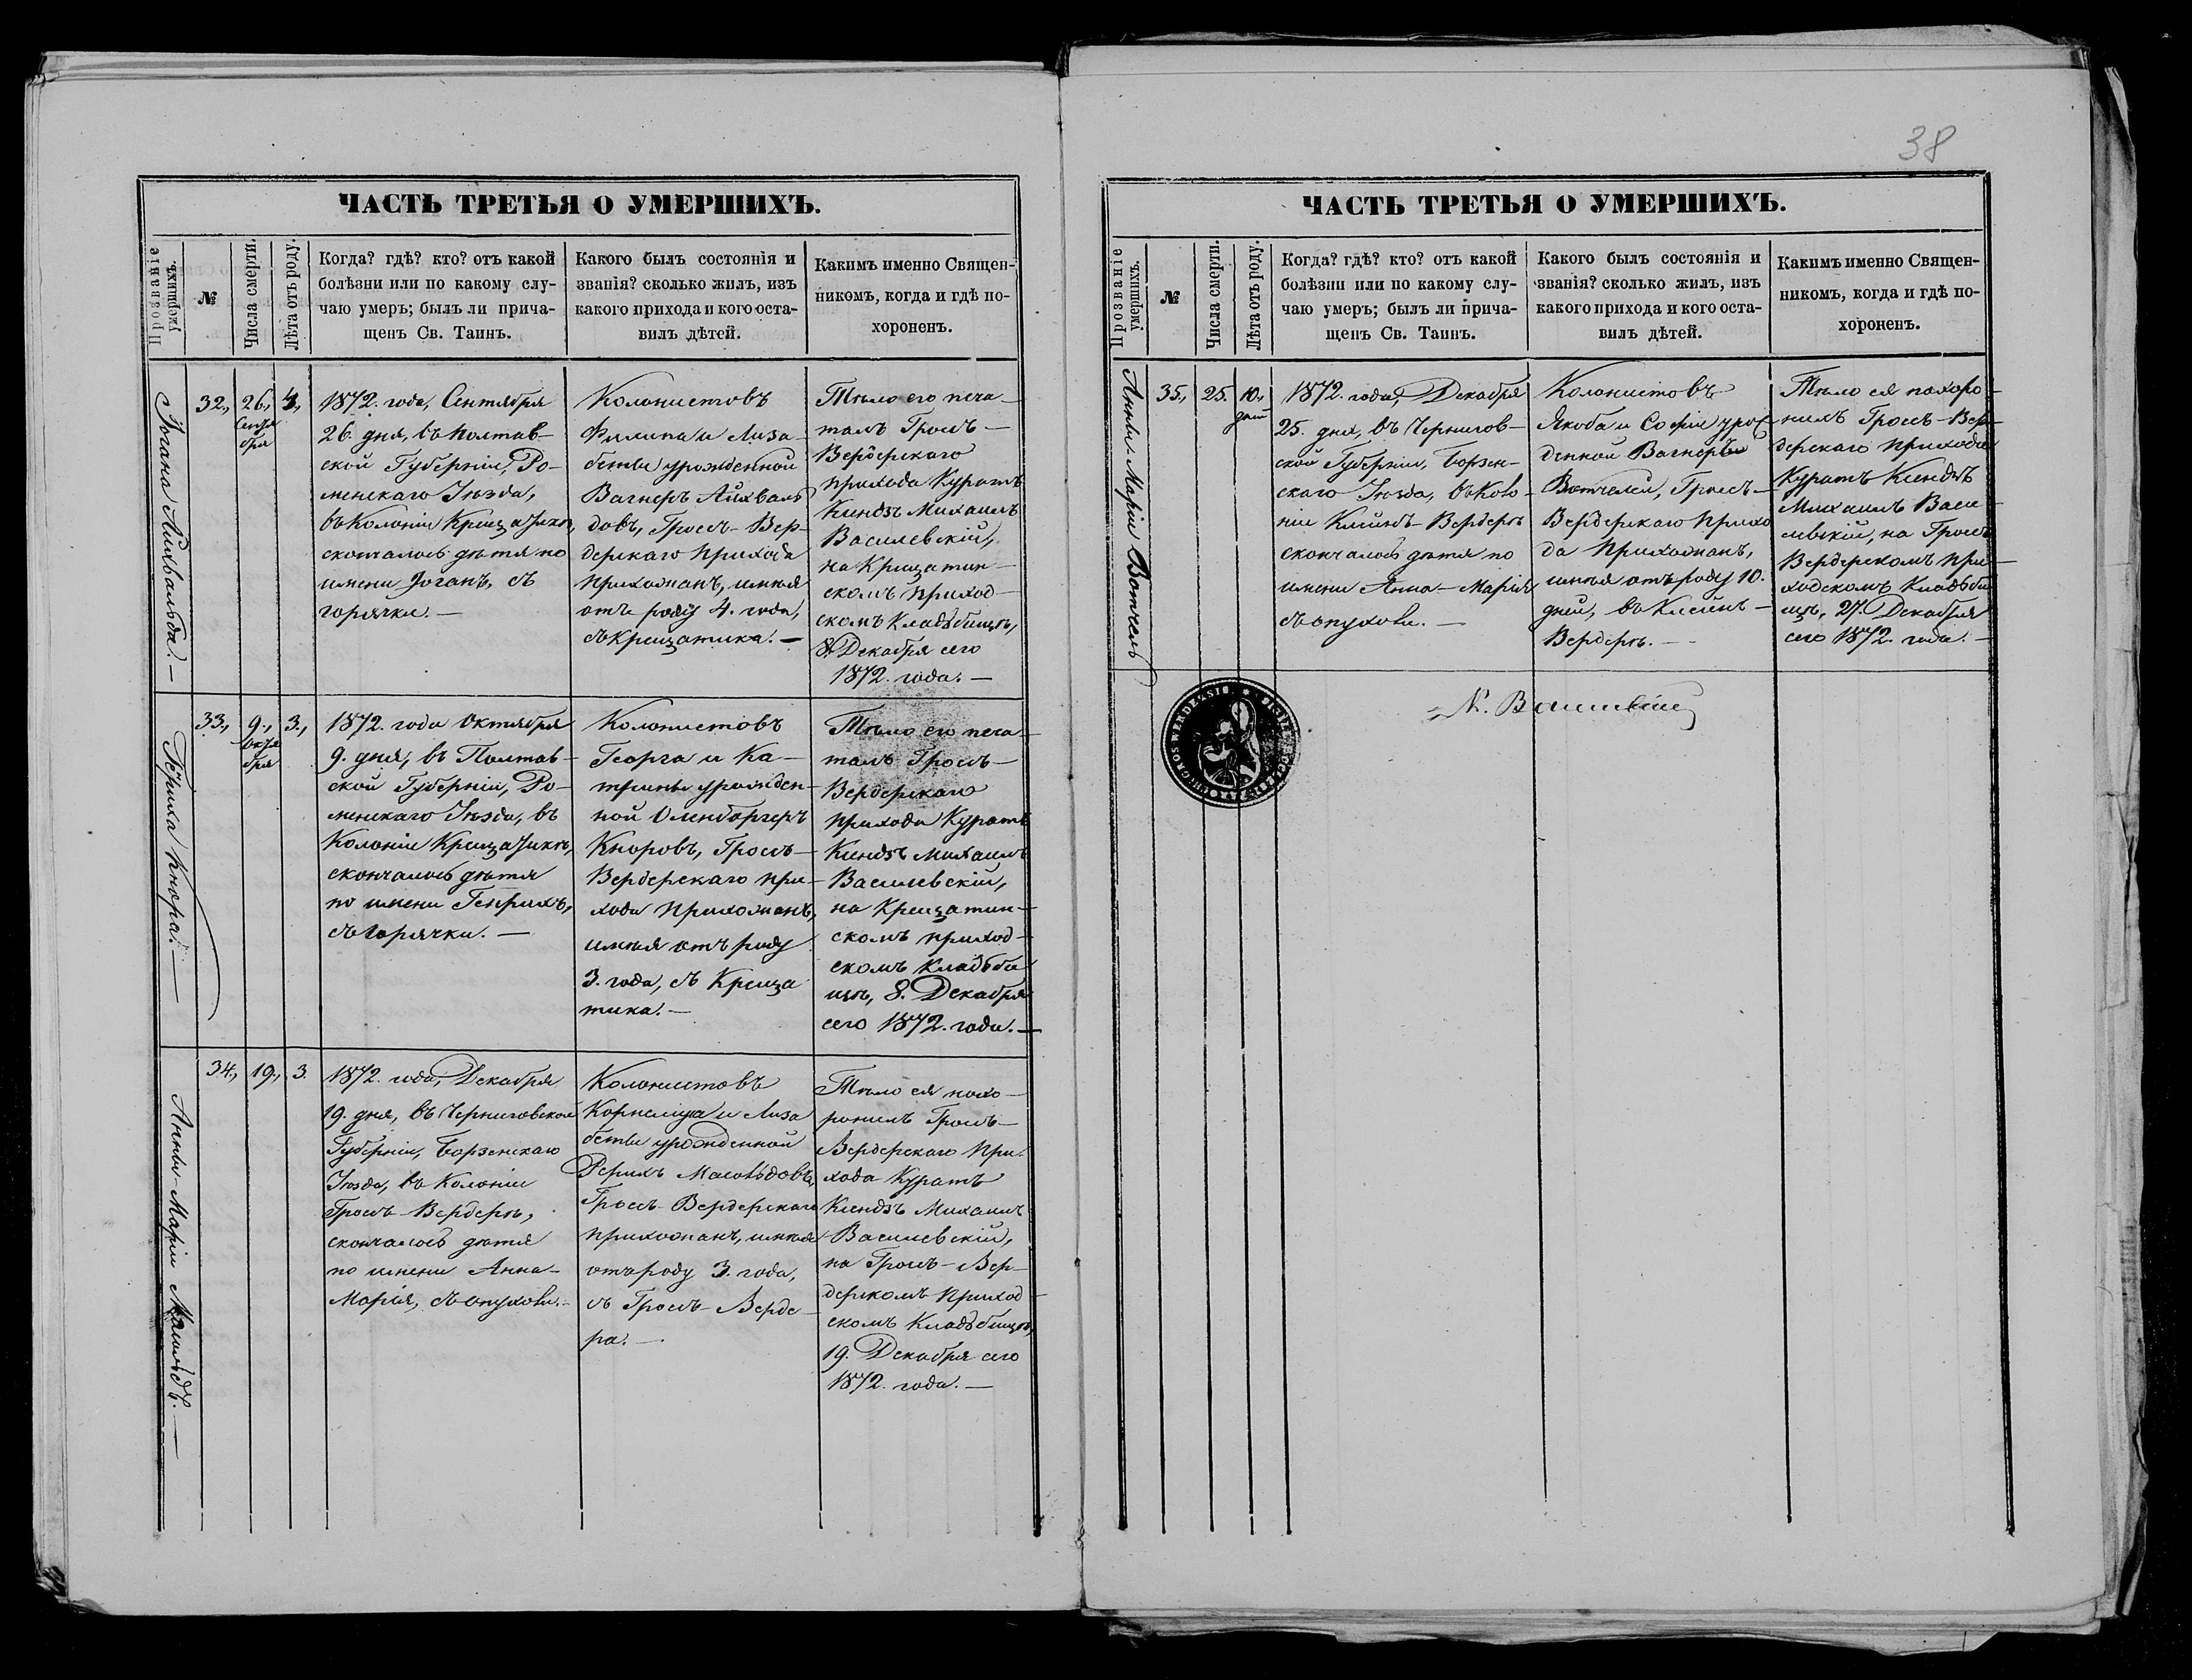 38
ЧАСТЬ ТРЕТЬЯ О УМЕРШИХЪ.
Прозваніе умершихъ.
№
Числа смерти.
Лѣта отъ роду.
Когда? гдѣ? кто? отъ какой
болѣзни или по какому слу-
чаю умеръ; былъ ли прича-
щенъ Св. Таинъ.
Какого былъ состоянія и
званія? сколько жилъ, изъ
какого прихода и кого оста-
вилъ дѣтей.
Какимъ именно Священ-
никомъ, когда и гдѣ по-
хороненъ.
Іогана Айхвальда. —
32.,
26.,
Сентя
бря
4.,
1872. года, Сентября
26. дня, въ Полтав-
ской Губерніи, Ро-
менскаго Уѣзда,
въ Колоніи Крещатикѣ,
скончалось дѣтя по
имени Іоганъ, съ
горячки. —
Колонистовъ
Филипа и Лиза-
беты урожденной
Вагнеръ Айхваль
довъ, Гросъ-Вер-
дерскаго Прихода
прихожанъ, имѣя
отъ роду 4. года,
съ Крещатика. —
Тѣло его печа-
талъ Гросъ-
Вердерскаго
прихода Куратъ
Ксендзъ Михаилъ
Василевскій,
на Крещатин-
скомъ приход-
скомъ Кладбищѣ,
8. Декабря сего
1872. года. —
Генриха Кнора. —
33.,
9.,
Октя
бря
3.,
1872. года Октября
9. дня, въ Полтав-
ской Губерніи, Ро-
менскаго Уѣзда, въ
Колоніи Крещатикѣ,
скончалось дѣтя
по имени Генрихъ,
съ горячки. —
Колонистовъ
Георга и Ка-
трины урожден-
ной Оленборгеръ
Кноровъ, Гросъ-
Вердерскаго при-
хода прихожанъ,
имѣя отъ роду
3. года, съ Креща
тика. —
Тѣло его печа-
талъ Гросъ-
Вердерскаго
прихода Куратъ
Ксендзъ Михаилъ
Василевскій,
на Крещатин-
скомъ приход-
скомъ Кладби
щѣ, 8. Декабря
сего 1872. года. —
Анны-Маріи —
34.,
19.,
3.
1872. года, Декабря
19. дня, въ Черниговской
Губерніи, Борзенскаго
Уѣзда, въ Колоніи
Гросъ-Вердерѣ,
скончалось дѣтя
по имени Анна-
Марія, съ опухови. —
Колонистовъ
Корнелиуса и Лиза
беты урожденной
Рерихъ
Гросъ-Вердерскаго
прихожанъ, имѣя
отъ роду 3. года,
съ Гросъ-Верде-
ра. —
Тѣло ея похо-
ронилъ Гросъ-
Вердерскаго При-
хода Куратъ
Ксендзъ Михаилъ
Василевскій,
на Гросъ-Вер-
дерскомъ Приход-
скомъ Кладбищѣ,
19. Декабря сего
1872. года. —
ЧАСТЬ ТРЕТЬЯ О УМЕРШИХЪ.
Прозваніе умершихъ.
№
Числа смерти.
Лѣта отъ роду.
Когда? гдѣ? кто? отъ какой
болѣзни или по какому слу-
чаю умеръ; былъ ли прича-
щенъ Св. Таинъ.
Какого былъ состоянія и
званія? сколько жилъ, изъ
какого прихода и кого оста-
вилъ дѣтей.
Какимъ именно Священ-
никомъ, когда и гдѣ по-
хороненъ.
Анны-Маріи Вотчель
35.,
25.
10.,
дней
1872. года, Декабря
25. дня, въ Чернигов-
ской Губерніи, Борзен-
скаго Уѣзда, въ Коло-
ніи Клейнъ-Вердерѣ
скончалось дѣтя по
имени Анна-Марія
съ опухови. —
Колонистовъ
Якоба и Софіи урож
денной Вагнеръ
Вотчелей, Гросъ-
Вердерскаго Прихо
да Прихожанъ,
имѣя отъ роду 10.
дней, въ Клейнъ-
Вердерѣ. —
Тѣло ея похоро-
нилъ Гросъ-Вер-
дерскаго Прихода
Куратъ Ксендзъ
Михаилъ Васи
левскій, на Гросъ
Вердерскомъ при-
ходскомъ Кладби
щѣ, 27. Декабря
сего 1872. года. —